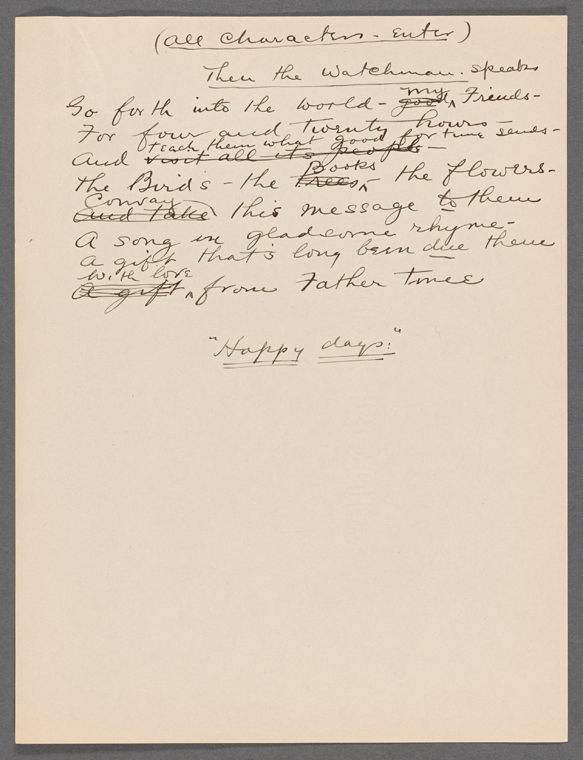 (All Characters - Enter)
Then the Watchman. speaks
Go forth into the world - good my Friends -
For four and twenty hours -
teach them what good fortune sends -
And visit all its people -
Books
The Birds - the trees - the flowers -
Convay
And take this message to them
A song in gladsome rhyme -
A gift that's long been due them
With love
A gift from Father Time
"Happy days."